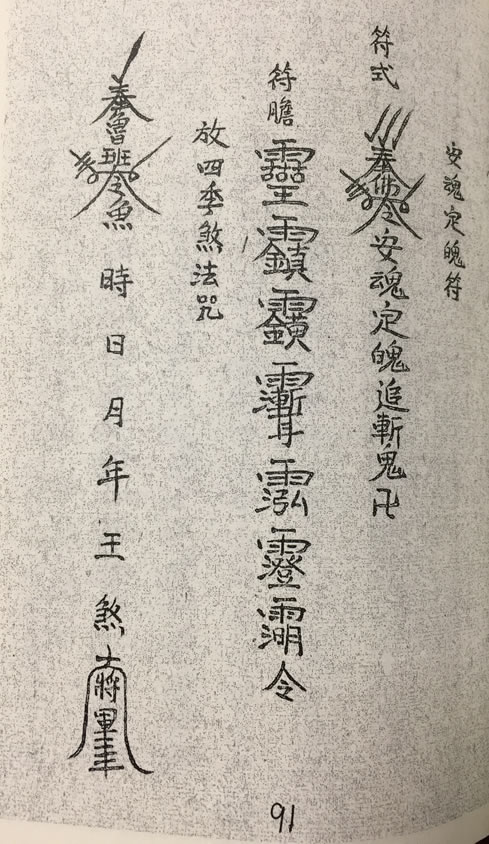 安魂定魄符
符式
奉佛令安魂定魄追斬鬼卍
符膽
令
放四季煞法咒
奉魯班令魚時日月年王煞
將軍
91